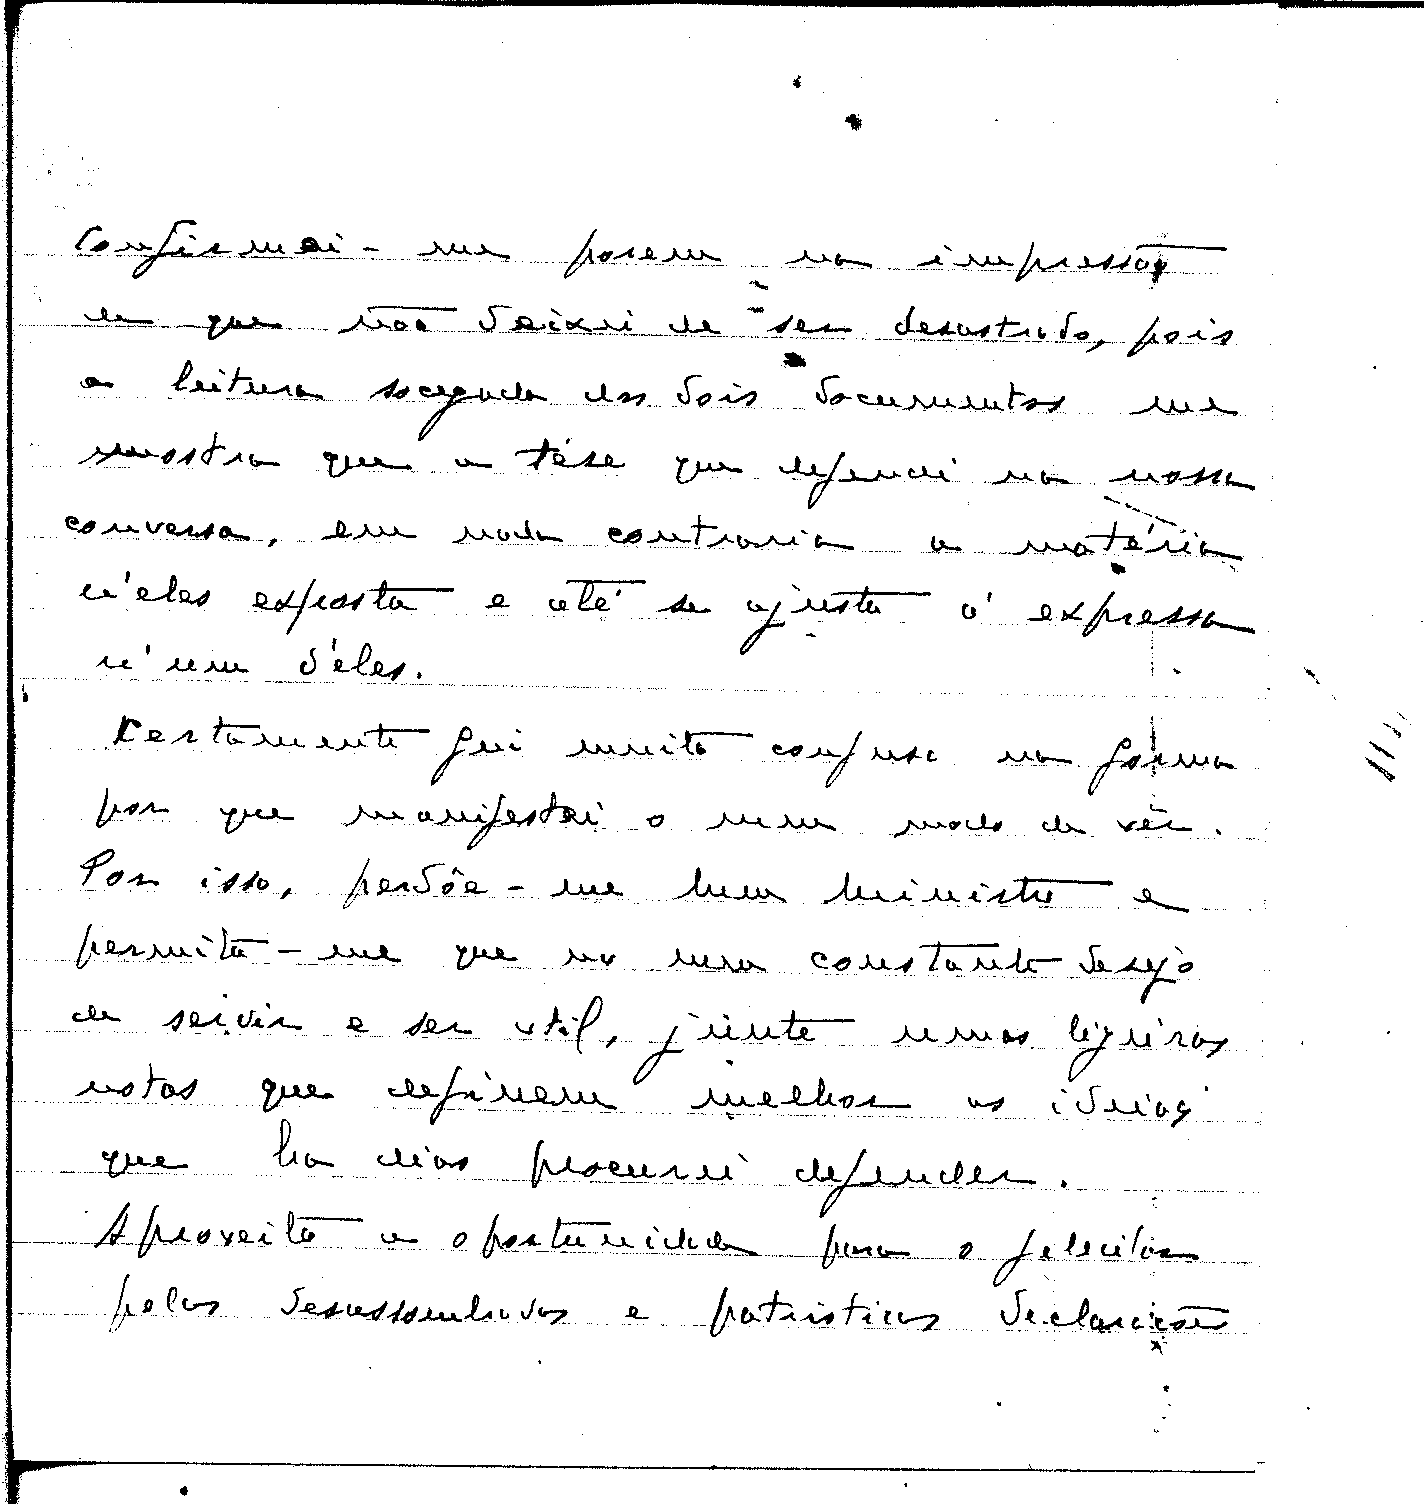 Confirmei-me porem na impressão
de que não deixei de ser desastrado, pois
a leitura socegada dos dois documentos me
mostra que a tése que defendi na nossa
conversa, em nada contraria a matéria
n'eles exposta e até se ajusta á expressa
n'um d'eles.
Certamente fui muito confuso na forma
por que manifestei o meu modo de vêr.
Por isso, perdôe-me bom Ministro e
permita-me que no meu constante desejo
de servir e ser util, junte umas ligeiras
notas que definem melhor as ideias
que ha dias procurei defender.
Aproveito a oportunidade para o felicitar
pelas desassombradas e patrioticas declarações